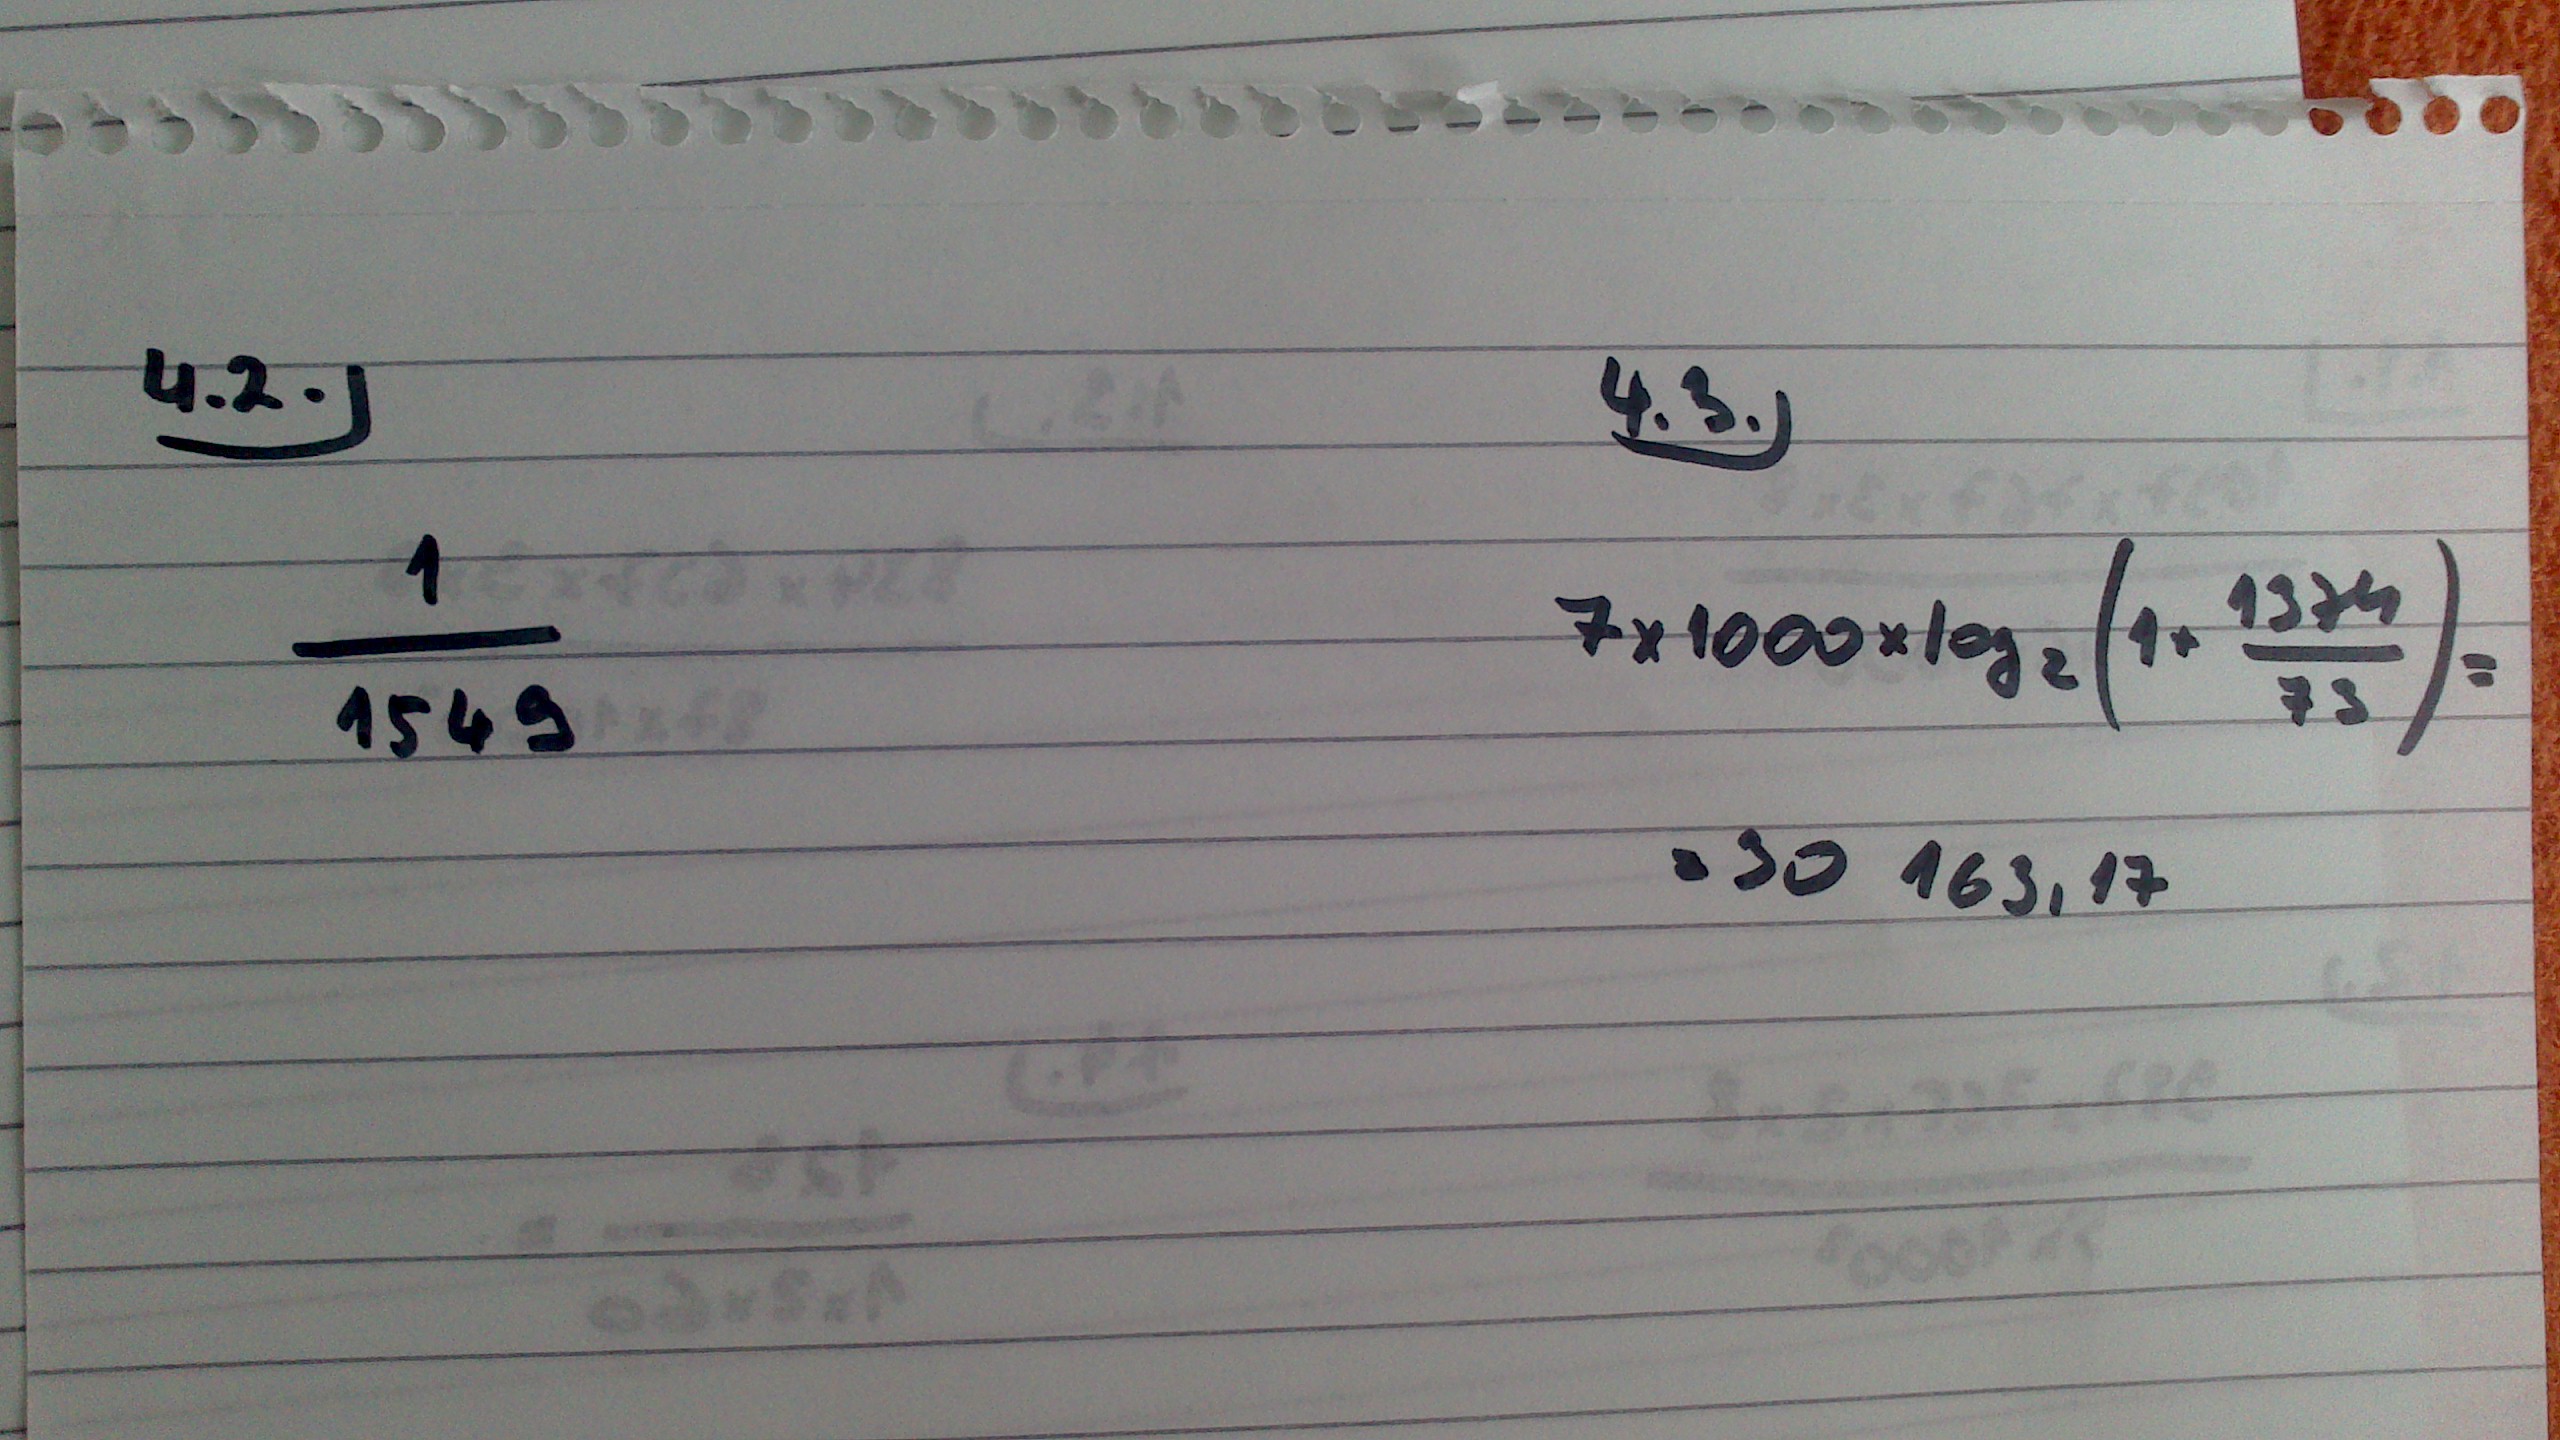 4.2.)
1
1549
4.3.)
7x1000xlog₂(1+1374/73)=
=30 163,17